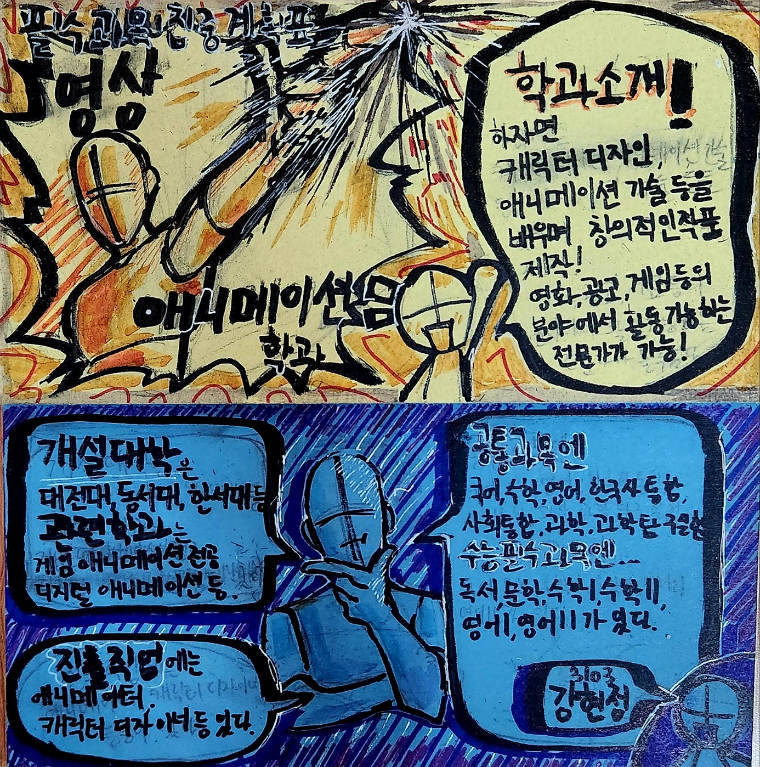 필수과목 진중계획표
영상
애니메이션
학과
학과소개!
하자면
캐릭터 디자인,
애니메이션 기술 등을
배우며 창의적인 작품
제작!
영화, 광고, 게임등의
분야에서 활동 가능하는
전문가가 가능!
개설대학은
대전대, 동서대, 한서대등
관련학과는
게임 애니메이션 전공
디지털 애니메이션 등.
진출직업에는
애니메이터,
캐릭터 디자이너 등 있다.
공통과목엔
국어, 수학, 영어, 한국사, 통합,
사회통합, 과학, 과학탐구실험
수능필수과목엔...
독서, 문학, 수학I, 수학II,
영어I, 영어II가 있다.
3103
강현정